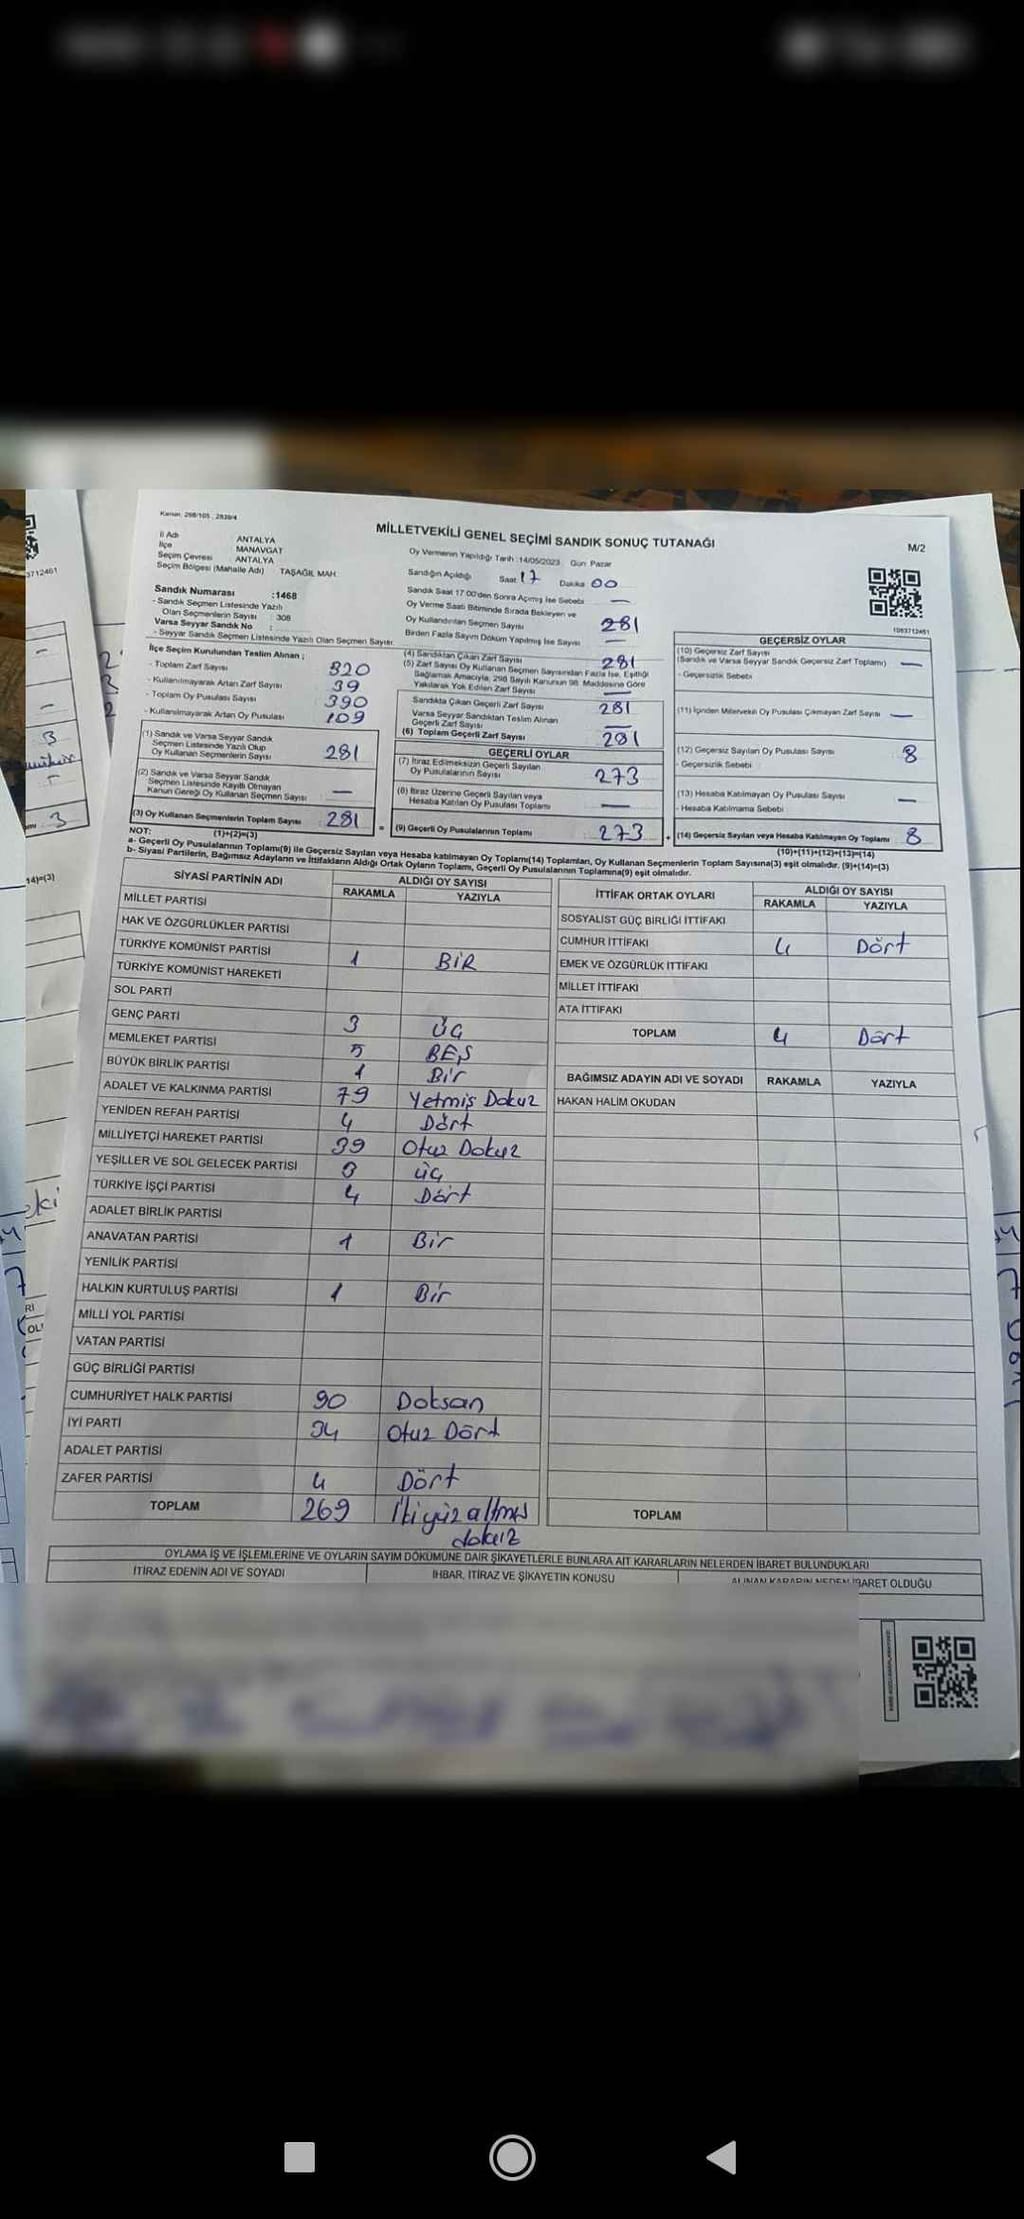 Kanun: 298/105, 2839/4
MİLLETVEKİLİ GENEL SEÇİMİ SANDIK SONUÇ TUTANAĞI
M/2
İl Adı ANTALYA
İlçe MANAVGAT
Seçim Çevresi ANTALYA
Seçim Bölgesi (Mahalle Adı) TAŞAĞIL MAH.
Oy Vermenin Yapıldığı Tarih :14/05/2023 Gün Pazar
Sandığın Açıldığı Saat 17 Dakika 00
Sandık Saat 17:00'den Sonra Açımış İse Sebebi —
Oy Verme Saati Bitiminde Sırada Bekleyen ve
Oy Kullandırılan Seçmen Sayısı 281
Birden Fazla Sayım Döküm Yapılmış İse Sayısı —
Sandık Numarası :1468
- Sandık Seçmen Listesinde Yazılı
Olan Seçmenlerin Sayısı : 308
Varsa Seyyar Sandık No :
- Seyyar Sandık Seçmen Listesinde Yazılı Olan Seçmen Sayısı
1083712461
İlçe Seçim Kurulundan Teslim Alınan ;
- Toplam Zarf Sayısı 320
- Kullanılmayarak Artan Zarf Sayısı 39
- Toplam Oy Pusulası Sayısı 390
- Kullanılmayarak Artan Oy Pusulası 109
(1) Sandık ve Varsa Seyyar Sandık
Seçmen Listesinde Yazılı Olup
Oy Kullanan Seçmenlerin Sayısı 281
(2) Sandık ve Varsa Seyyar Sandık
Seçmen Listesinde Kayıtlı Olmayan
Kanun Gereği Oy Kullanan Seçmen Sayısı —
(3) Oy Kullanan Seçmenlerin Toplam Sayısı 281
(1)+(2)=(3)
(4) Sandıktan Çıkan Zarf Sayısı 281
(5) Zarf Sayısı Oy Kullanan Seçmen Sayısından Fazla İse, Eşitliği
Sağlamak Amacıyla, 298 Sayılı Kanunun 98. Maddesine Göre
Yakılarak Yok Edilen Zarf Sayısı —
Sandıkta Çıkan Geçerli Zarf Sayısı 281
Varsa Seyyar Sandıktan Teslim Alınan
Geçerli Zarf Sayısı —
(6) Toplam Geçerli Zarf Sayısı 281
GEÇERLİ OYLAR
(7) İtiraz Edilmeksizin Geçerli Sayılan
Oy Pusulalarının Sayısı 273
(8) İtiraz Üzerine Geçerli Sayılan veya
Hesaba Katılan Oy Pusulası Toplamı —
(9) Geçerli Oy Pusulalarının Toplamı 273
GEÇERSİZ OYLAR
(10) Geçersiz Zarf Sayısı
(Sandık ve Varsa Seyyar Sandık Geçersiz Zarf Toplamı) —
- Geçersizlik Sebebi
(11) İçinden Milletvekili Oy Pusulası Çıkmayan Zarf Sayısı —
(12) Geçersiz Sayılan Oy Pusulası Sayısı 8
- Geçersizlik Sebebi
(13) Hesaba Katılmayan Oy Pusulası Sayısı —
- Hesaba Katılmama Sebebi
(14) Geçersiz Sayılan veya Hesaba Katılmayan Oy Toplamı 8
(10)+(11)+(12)+(13)=(14)
NOT:
a- Geçerli Oy Pusulalarının Toplamı(9) ile Geçersiz Sayılan veya Hesaba katılmayan Oy Toplamı(14) Toplamları, Oy Kullanan Seçmenlerin Toplam Sayısına(3) eşit olmalıdır. (9)+(14)=(3)
b- Siyasi Partilerin, Bağımsız Adayların ve İttifakların Aldığı Ortak Oyların Toplamı, Geçerli Oy Pusulalarının Toplamına(9) eşit olmalıdır.
SİYASİ PARTİNİN ADI ALDIĞI OY SAYISI
RAKAMLA YAZIYLA
MİLLET PARTİSİ
HAK VE ÖZGÜRLÜKLER PARTİSİ
TÜRKİYE KOMÜNİST PARTİSİ 1 BİR
TÜRKİYE KOMÜNİST HAREKETİ
SOL PARTİ
GENÇ PARTİ 3 ÜÇ
MEMLEKET PARTİSİ 5 BEŞ
BÜYÜK BİRLİK PARTİSİ 1 Bir
ADALET VE KALKINMA PARTİSİ 79 Yetmiş Dokuz
YENİDEN REFAH PARTİSİ 4 Dört
MİLLİYETÇİ HAREKET PARTİSİ 39 Otuz Dokuz
YEŞİLLER VE SOL GELECEK PARTİSİ 3 üç
TÜRKİYE İŞÇİ PARTİSİ 4 Dört
ADALET BİRLİK PARTİSİ
ANAVATAN PARTİSİ 1 Bir
YENİLİK PARTİSİ
HALKIN KURTULUŞ PARTİSİ 1 Bir
MİLLİ YOL PARTİSİ
VATAN PARTİSİ
GÜÇ BİRLİĞİ PARTİSİ
CUMHURİYET HALK PARTİSİ 90 Doksan
İYİ PARTİ 34 Otuz Dört
ADALET PARTİSİ
ZAFER PARTİSİ 4 Dört
TOPLAM 269 İkiyüz altmış
dokuz
İTTİFAK ORTAK OYLARI ALDIĞI OY SAYISI
RAKAMLA YAZIYLA
SOSYALİST GÜÇ BİRLİĞİ İTTİFAKI
CUMHUR İTTİFAKI 4 Dört
EMEK VE ÖZGÜRLÜK İTTİFAKI
MİLLET İTTİFAKI
ATA İTTİFAKI
TOPLAM 4 Dört
BAĞIMSIZ ADAYIN ADI VE SOYADI RAKAMLA YAZIYLA
HAKAN HALİM OKUDAN
TOPLAM
OYLAMA İŞ VE İŞLEMLERİNE VE OYLARIN SAYIM DÖKÜMÜNE DAİR ŞİKAYETLERLE BUNLARA AİT KARARLARIN NELERDEN İBARET BULUNDUKLARI
İTİRAZ EDENİN ADI VE SOYADI İHBAR, İTİRAZ VE ŞİKAYETİN KONUSU ALINAN KARARIN NEDEN İBARET OLDUĞU